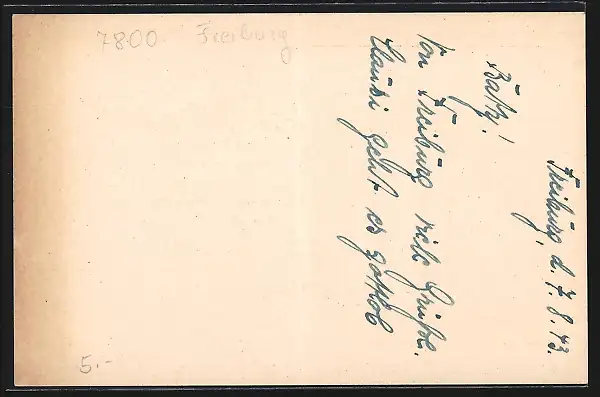 7800 Freiburg
Freiburg, d. 7.8.43.
Batty!
Von Freiburg viele Grüße.
Hansi geht es
5.-